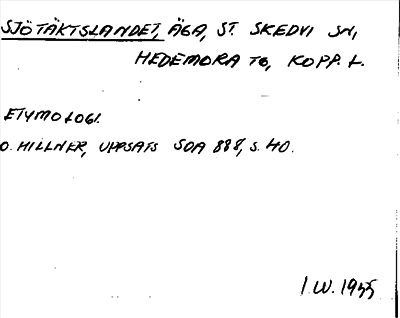 SJÖTÄKTSLANDET, ÄGA, ST. SKEDVI SN,
HEDEMORA TG, KOPP. L.
ETYMOLOGI.
O. HILLNER, UPPSATS SOA 888, S. 40.
I.W. 1955